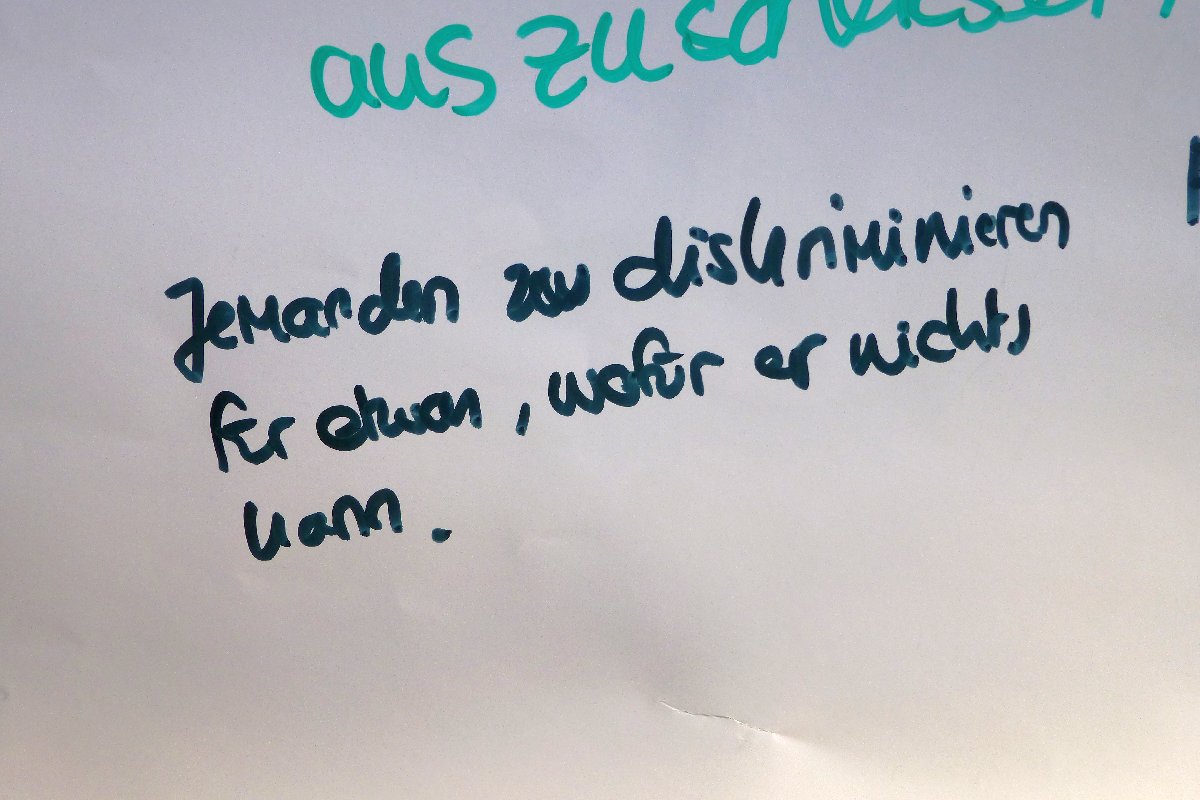 auszuschliessen
Jemanden zu diskriminieren
für etwas, wofür er nichts
kann.